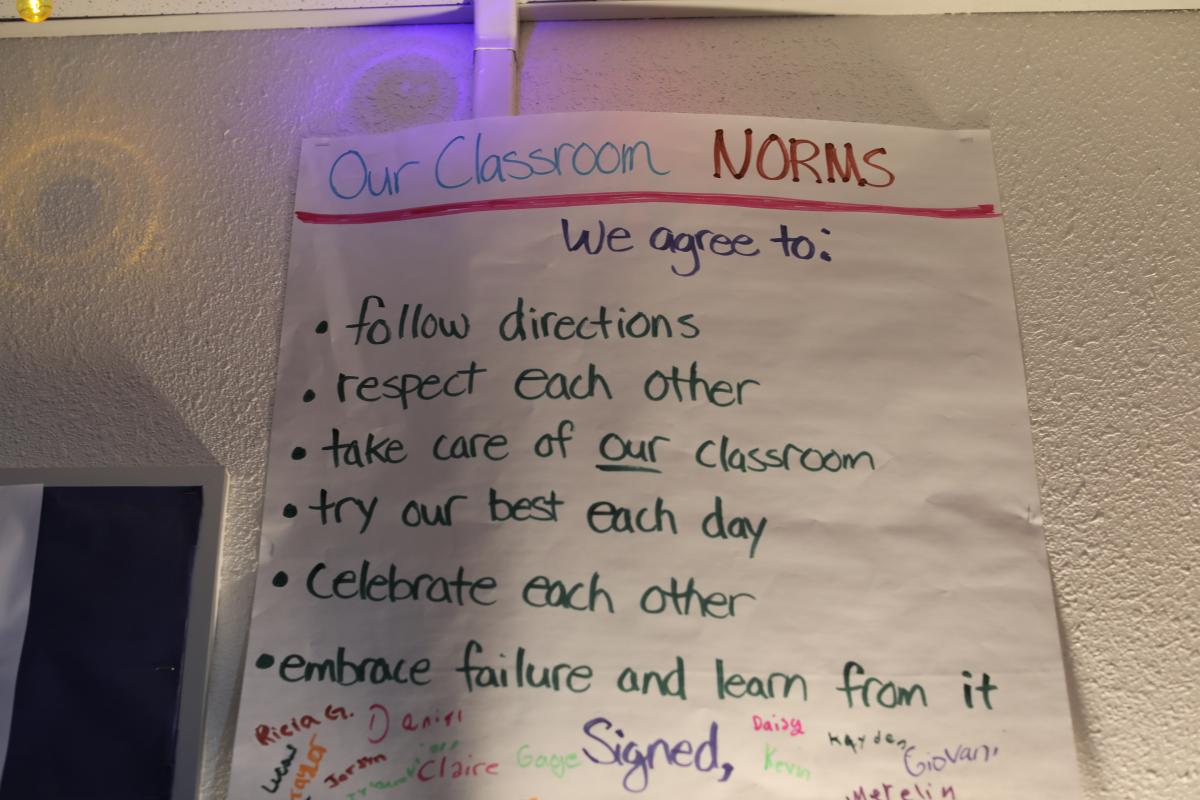 Our Classroom NORMS
We agree to:
• follow directions
• respect each other
• take care of our classroom
• try our best each day
• Celebrate each other
• embrace failure and learn from it
Daniel
Daisy
Kayden
Taylor
Claire
Gage
Signed,
Kevin
Giovani
Merelin